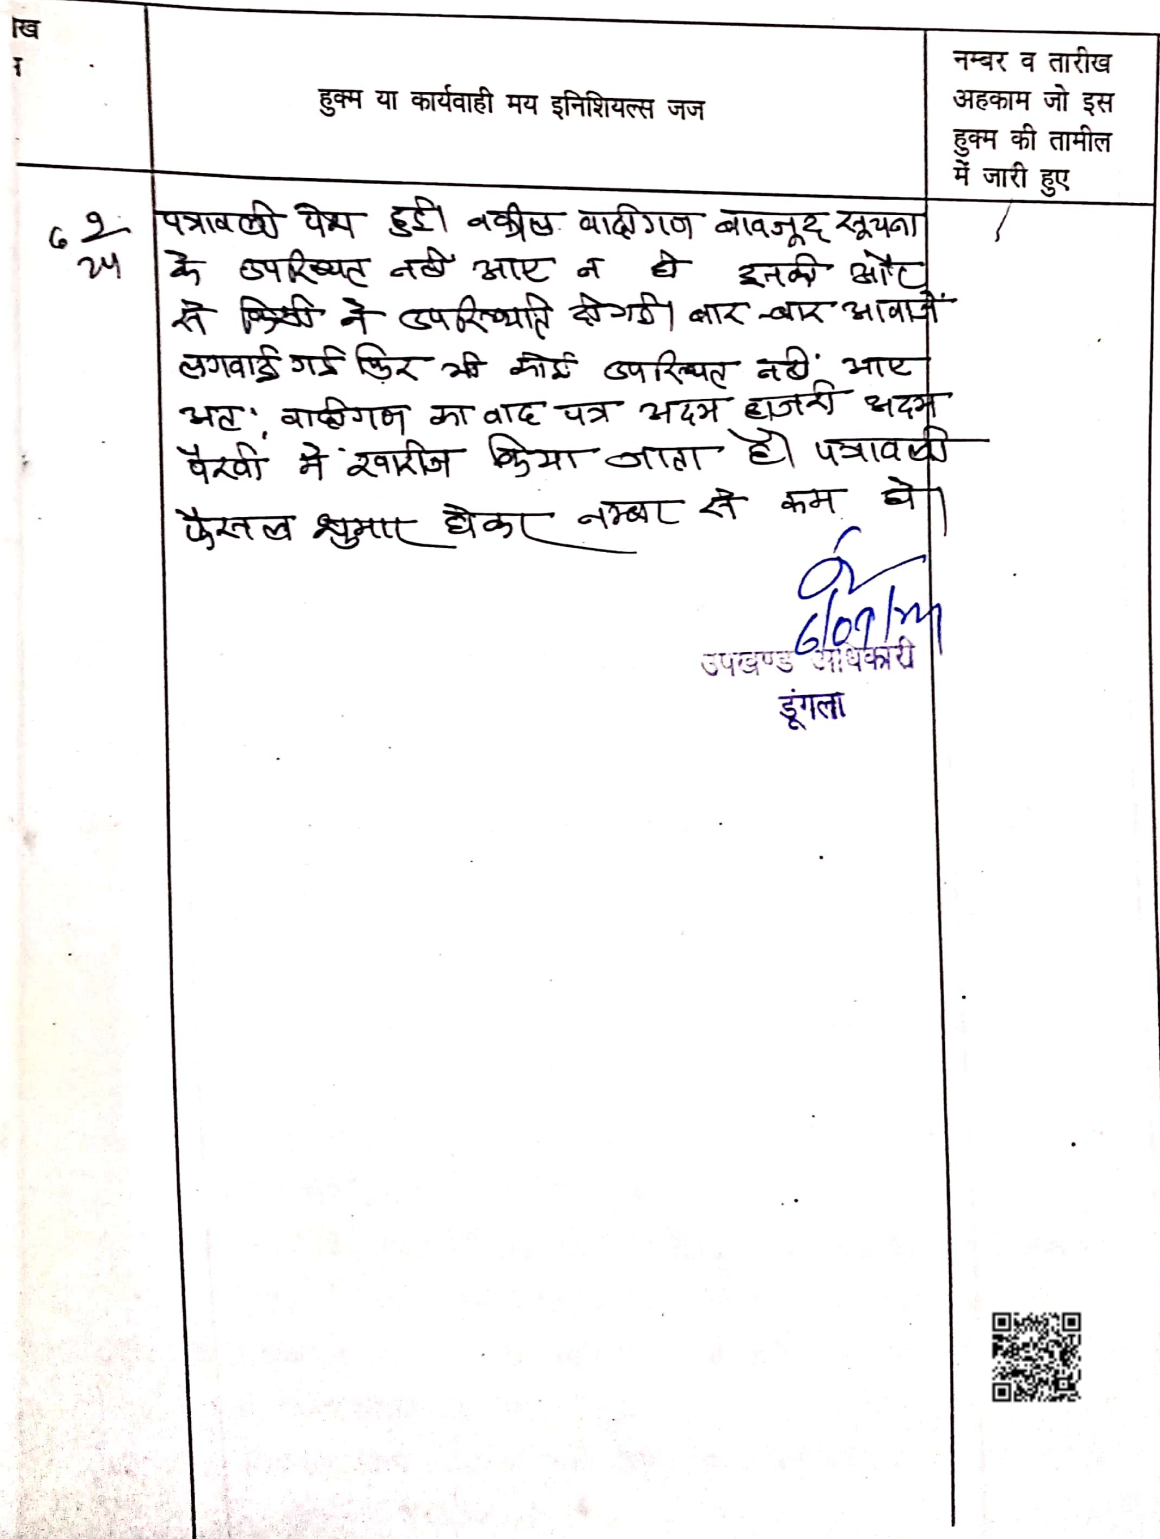 ख
हुक्म या कार्यवाही मय इनिशियल्स जज
नम्बर व तारीख
अहकाम जो इस
हुक्म की तामील
में जारी हुए
6 9/24
पत्रावली पेश हुई। वकील वादीगण बावजूद सूचना
के उपस्थित नहीं आए न ही इनकी ओर
से किसी ने उपस्थिति दी गई। बार-बार आवाजें
लगवाई गई फिर भी कोई उपस्थित नहीं आए
अतः वादीगण का वाद पत्र अदम हाजरी अदम
पैरवी में खारीज किया जाता है। पत्रावली
फैसल शुमार होकर नम्बर से कम हो।
6/09/24
उपखण्ड अधिकारी
डूंगला